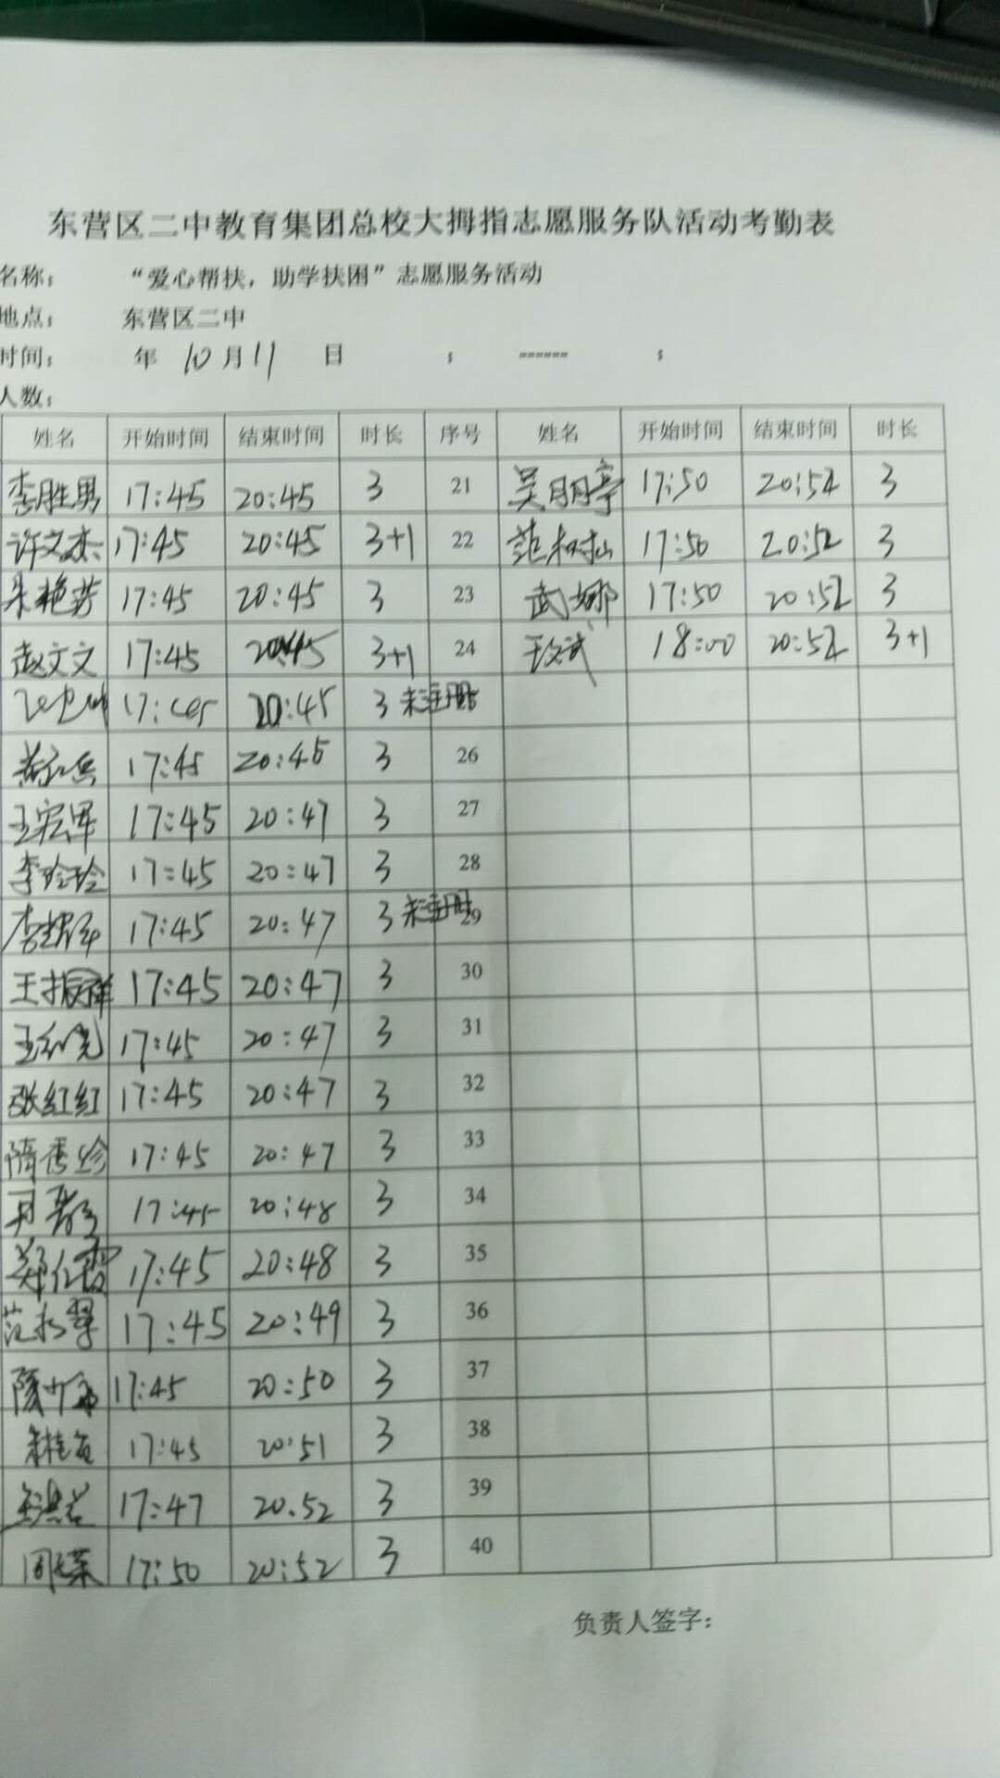 东营区二中教育集团总校大拇指志愿服务队活动考勤表
名称： “爱心帮扶，助学扶困”志愿服务活动
地点： 东营区二中
时间： 年 10 月 11 日 : ------ :
人数：
姓名 开始时间 结束时间 时长 序号 姓名 开始时间 结束时间 时长
李胜男 17:45 20:45 3 21 吴丽亭 17:50 20:52 3
许文杰 17:45 20:45 3+1 22 范树山 17:50 20:52 3
朱艳芳 17:45 20:45 3 23 武娜 17:50 20:52 3
赵文文 17:45 20:45 3+1 24 18:00 20:52 3+1
17:45 20:45 3 未注册
17:45 20:45 3 26
王宏军 17:45 20:47 3 27
李玲玲 17:45 20:47 3 28
17:45 20:47 3 未注册 29
王振祥 17:45 20:47 3 30
17:45 20:47 3 31
张红红 17:45 20:47 3 32
隋秀珍 17:45 20:47 3 33
17:45 20:48 3 34
17:45 20:48 3 35
17:45 20:49 3 36
17:45 20:50 3 37
17:45 20:51 3 38
17:47 20.52 3 39
17:50 20:52 3 40
负责人签字：